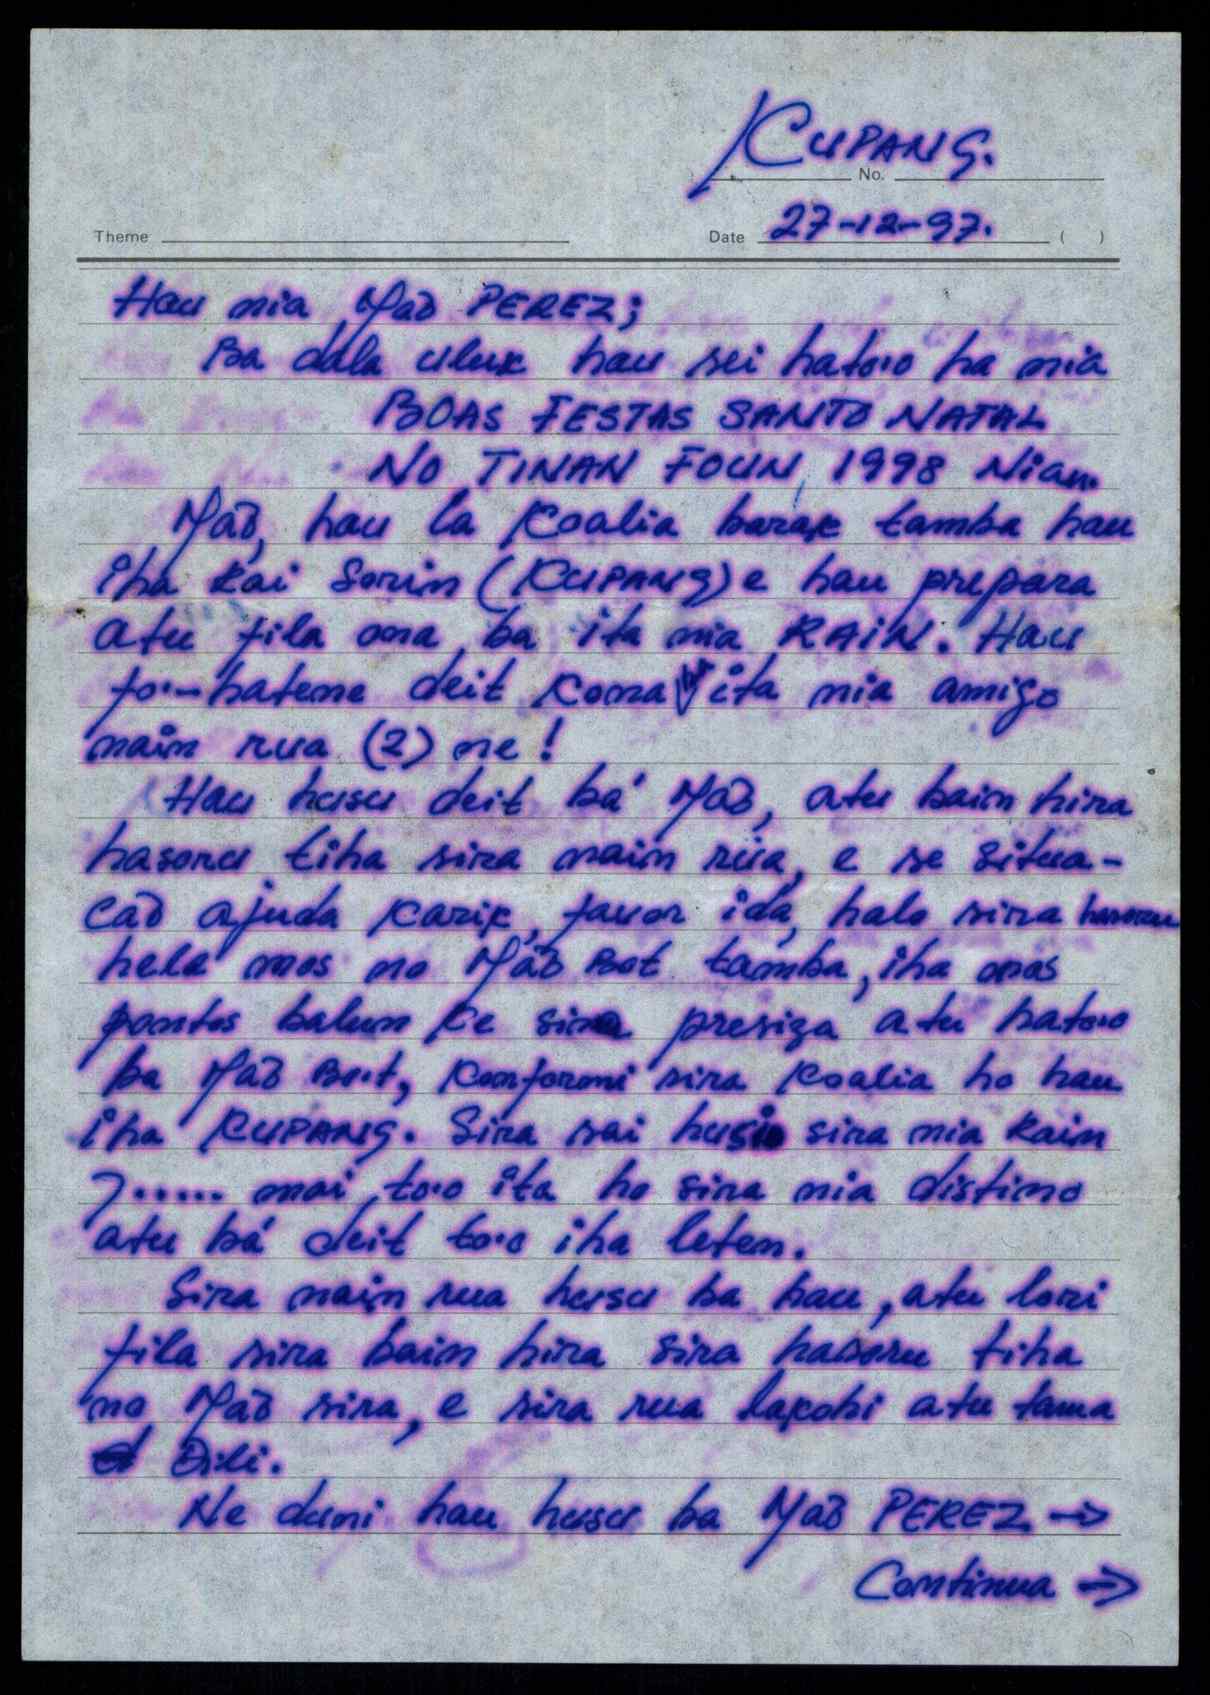 KUPANG.
No.
Theme Date 27-12-97. ( )
Hau nia Maõ PEREZ;
Ba dala uluk hau sei hato.o ba nia
BOAS FESTAS SANTO NATAL
NO TINAN FOUN, 1998 Nian.
Maõ, hau la Koalia barak tamba hau
iha Kai Sorin (KUPANG) e hau prepara
atu fila ona ba ita nia RAIN. Hau
fo.-hatene deit Kona ba ita nia amigo
nain rua (2) ne!
Hau husu deit bá Maõ, atu bain hira
hasoru tiha sira nain rua, e se situa-
caõ ajuda Karik, favor ida, halo sira hasoru
hela mos no Maõ Bot tamba, iha mos
pontos balun Ke sira presiza atu hato.o
ba Maõ Bo.t, Konformi sira Koalia ho hau
iha KUPANG. Sira sai husi sira nia Kain
7...... mai to.o ita ho sira nia distino
atu bá deit to.o iha leten.
Sira nain rua husu ba hau, atu lori
fila sira bain hira sira hasoru tiha
no Maõ sira, e sira rua lakohi atu tama
Dili.
Ne duni hau husu ba Maõ PEREZ →
Continua →